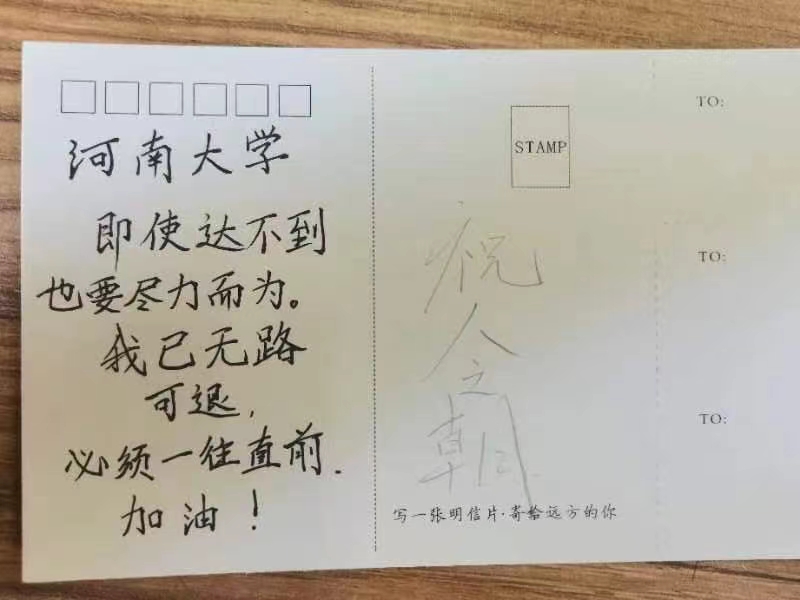 河南大学
即使达不到
也要尽力而为。
我已无路
可退,
必须一往直前.
加油!
STAMP
祝
人
之
朝
写一张明信片·寄给远方的你
TO:
TO:
TO: